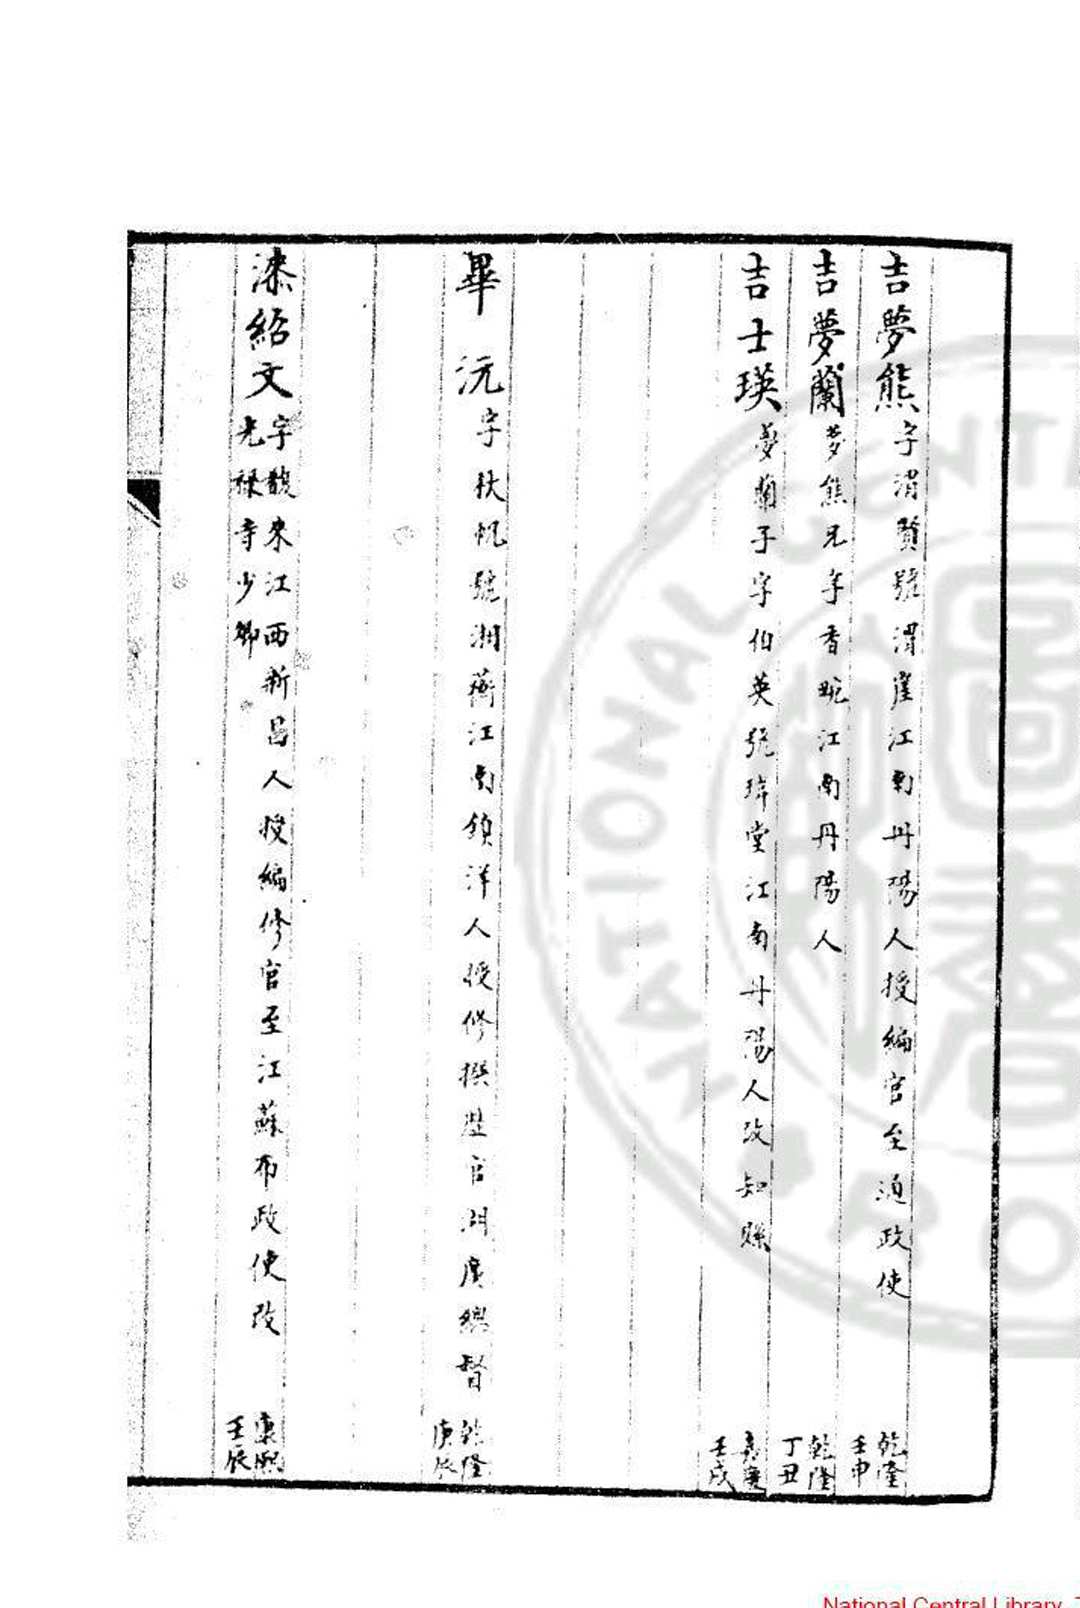 吉夢熊 字渭賢號渭崖江南丹陽人授編官至通政使 乾隆壬申
吉夢蘭 夢熊兄字香畹江南丹陽人 乾隆丁丑
吉士瑛 夢蘭子字伯英號瑋堂江南丹陽人改知縣 嘉慶壬戌
畢沅 字秋帆號湘蘅江南鎮洋人授修撰歷官湖廣總督 乾隆庚辰
漆紹文 字馥來江西新昌人授編修官至江蘇布政使改
光祿寺少卿 康熙壬辰
National Central Library